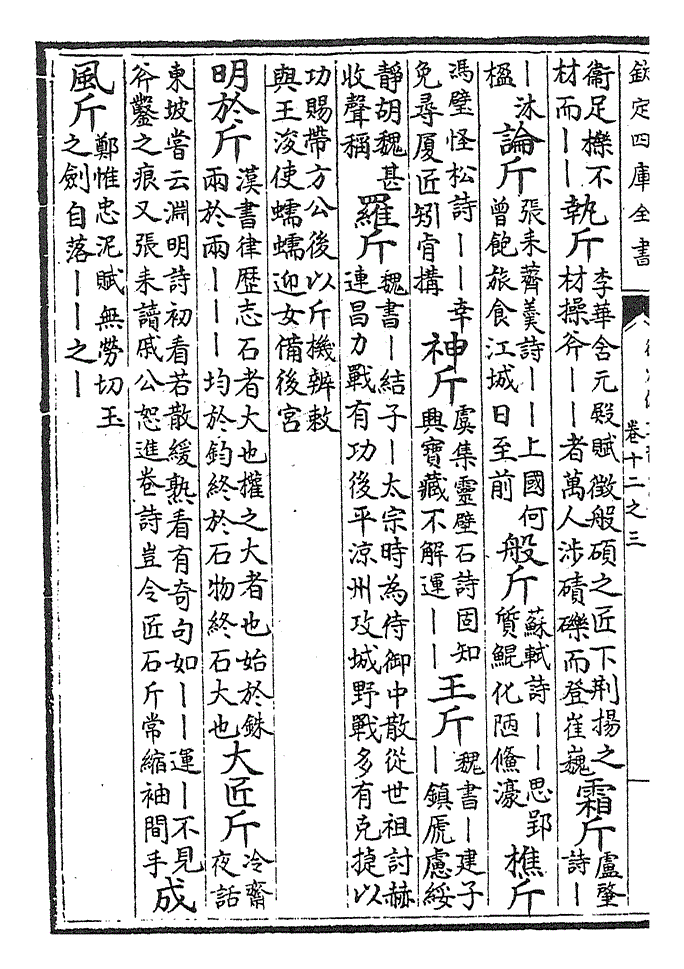 欽定四庫全書 卷十二之三
衞足櫟不材而｜｜ 執斤 李華含元殿賦徵般碩之匠下荆揚之材操斧｜｜者萬人涉磧礫而登崔巍 霜斤 盧肇詩｜
｜沐楹 論斤 張耒薺羮詩｜｜上國何曾飽旅食江城日至前 般斤 蘇軾詩｜｜思郢質鯤化陋鯈濠 樵斤
馮璧怪松詩｜｜幸免尋厦匠矧肎搆 神斤 虞集靈壁石詩固知興寶藏不解運｜｜ 王斤 魏書｜建子｜鎮虒慮綏
靜胡魏甚收聲稱 羅斤 魏書｜結子｜太宗時為侍御中散從世祖討赫連昌力戰有功後平涼州攻城野戰多有克捷以
功賜帶方公後以斤機辨敕與王浚使蠕蠕迎女備後宮
明於斤 漢書律歴志石者大也權之大者也始於銖兩於兩｜｜｜均於鈞終於石物終石大也 大匠斤 冷齋夜話
東坡嘗云淵明詩初看若散緩熟看有奇句如｜｜運｜不見斧鑿之痕又張耒讀戚公恕進卷詩豈令匠石斤常縮袖間手 成
風斤 鄭惟忠泥賦無勞切玉之劍自落｜｜之｜